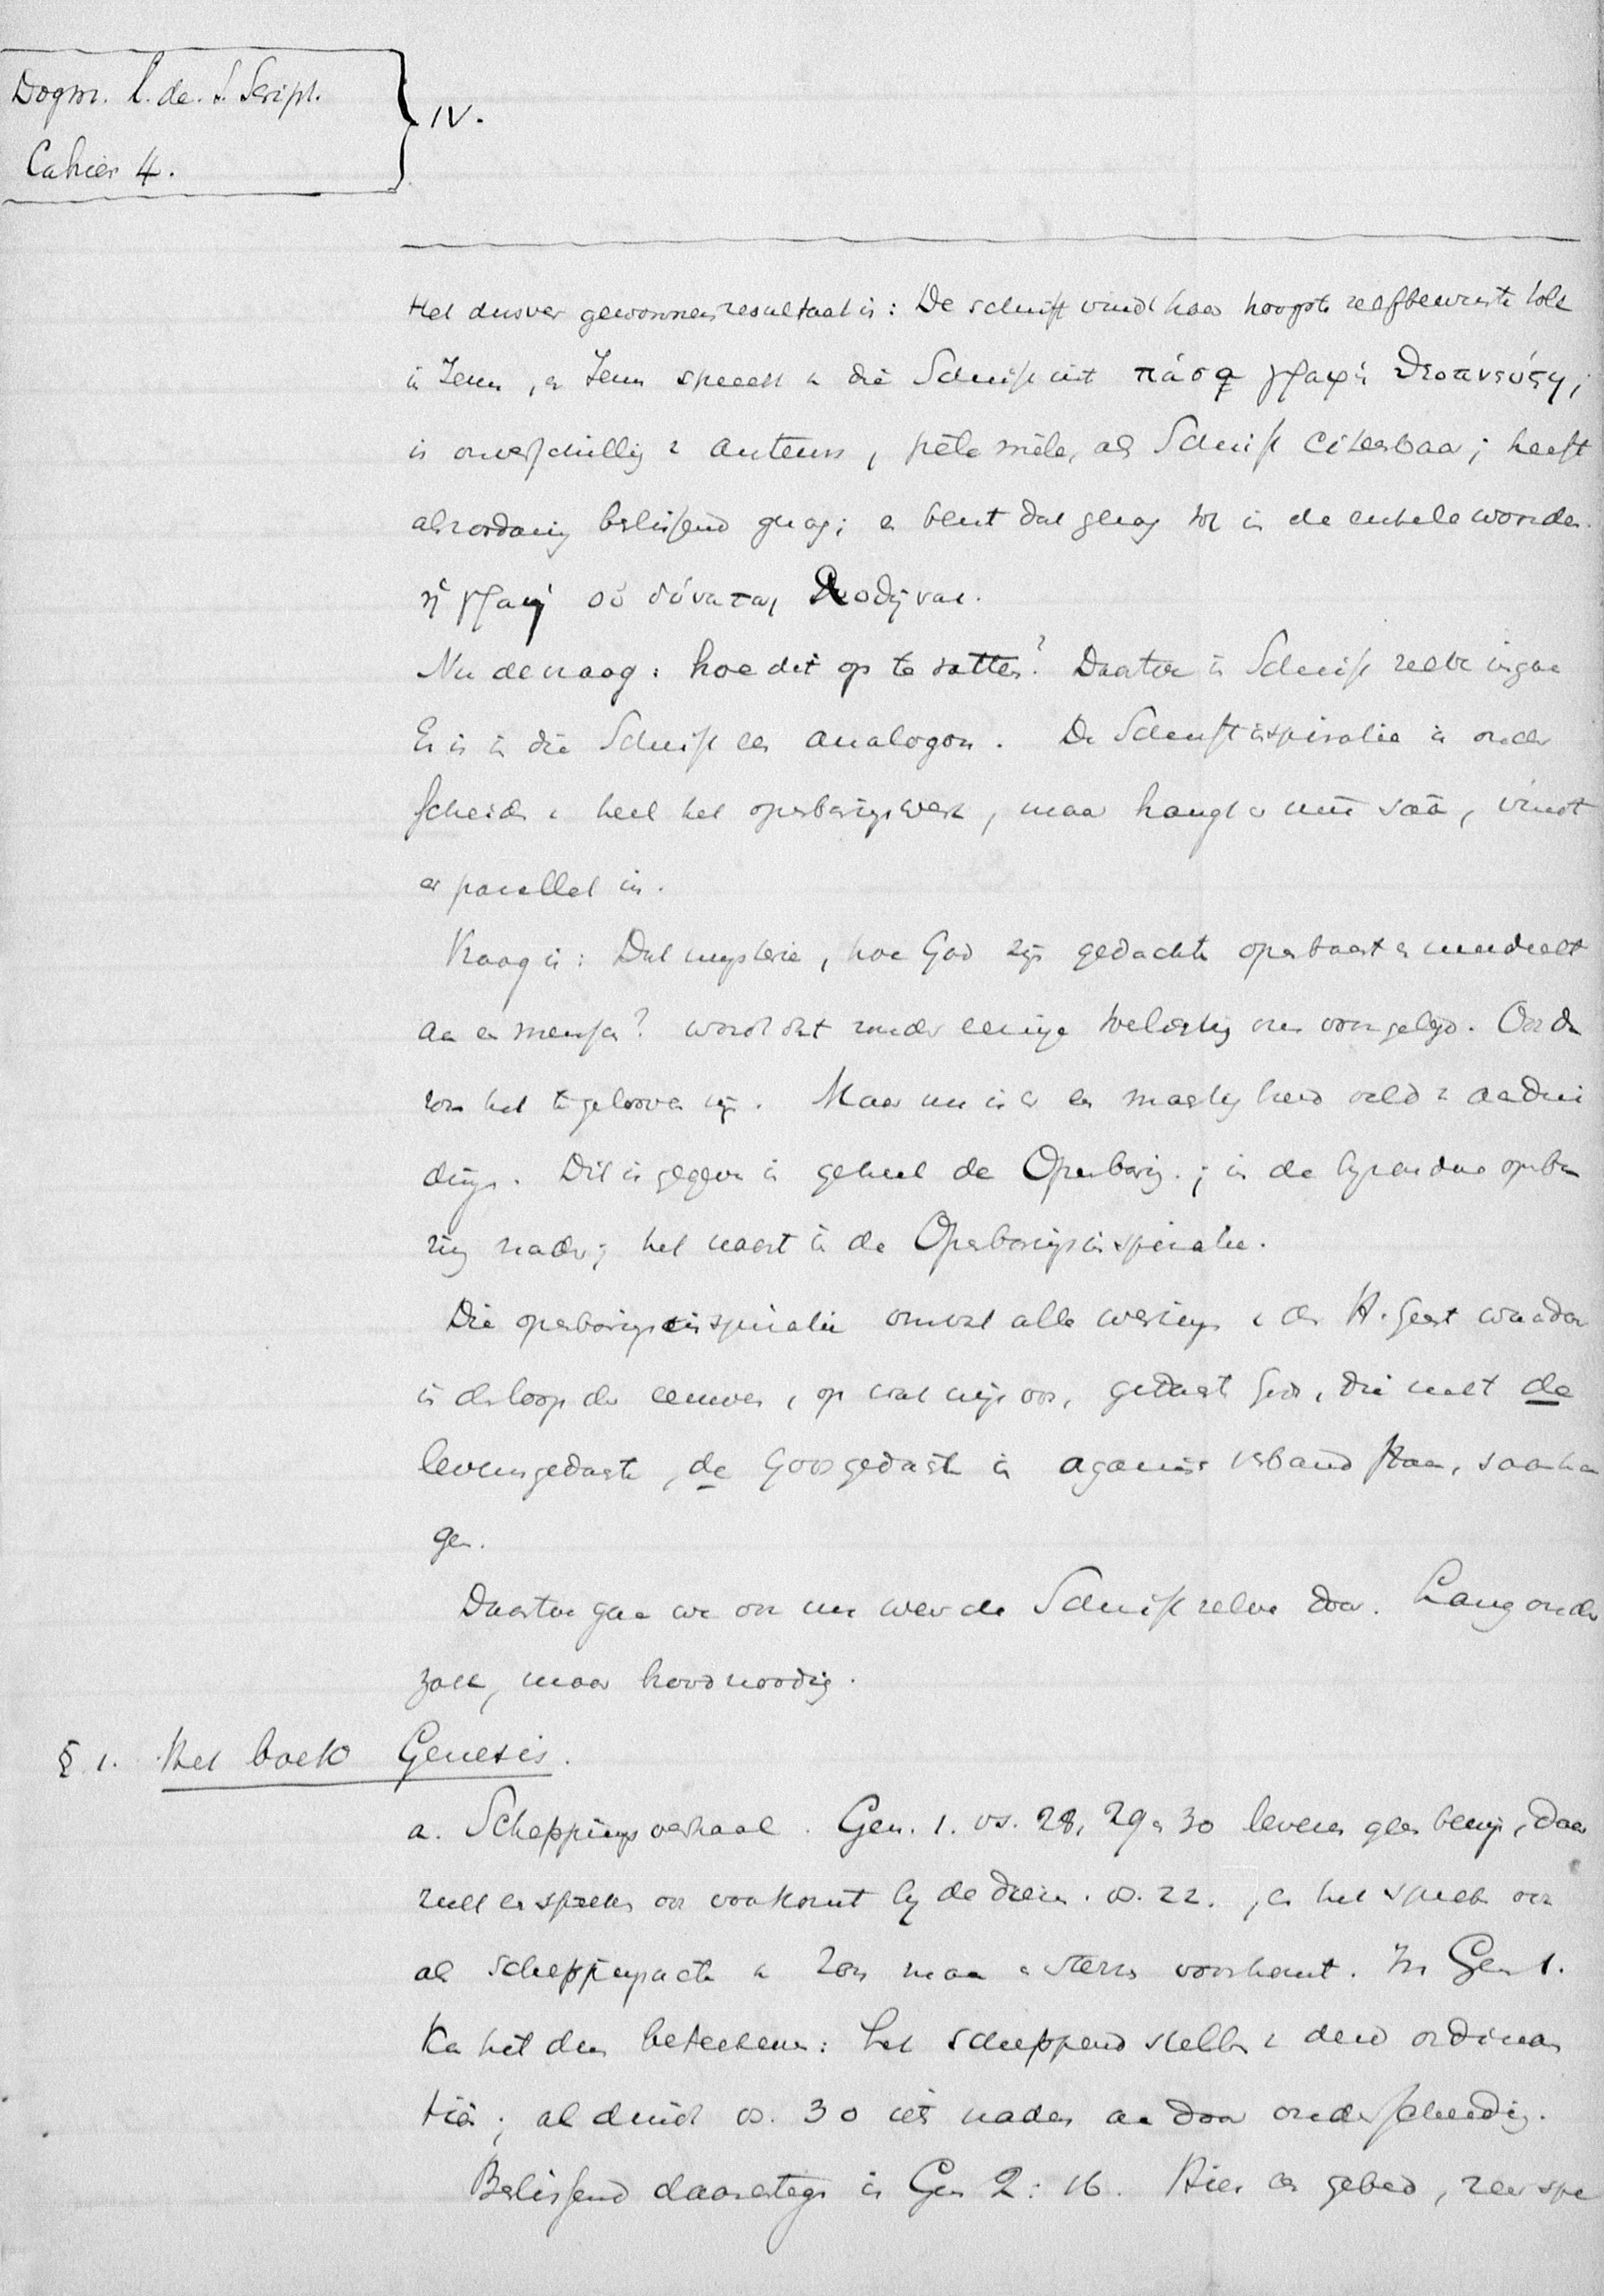 Dogm. l. de. S. Script.
Cahier 4.
IV.
Het dusver gewonnen resultaat is: De schrift vindt haar hoogste zelfbewuste tolk
in Jezus, en Jezus spreekt in die Schrift uit πάσα γραφὴ θεοπνεύστη;
is onverschillig v auteurs, pêle mêle, als Schrift citeerbaar; heeft
alzoodanig beslissend gezag; en kent dat gezag toe in de enkele woorden.
ἡ γραφὴ οὐ δύναται λυθῆναι.
Nu de vraag: hoe dit op te vatten? Daartoe in Schrift zelve ingaan
Er is in die Schrift een analogon. De Schriftinspiratie is onder
scheiden v heel het openbaringswerk, maar hangt er mee saam, vindt
er parallel in.
Vraag is: Dat mysterie, hoe God zijn gedachte openbaart en meedeelt
aan een mensch? wordt ons zonder eenige toelichting ons voorgelegd.
het te gelooven zijn. Maar nu is er een veld v aandui
ding. Dit is gegeven in geheel de Openbaring.; in de openba
ring nader; het naast in de Openbaringsinspiratie.
Die openbaringsinspiratie omvat alle werkingen v den H. Geest waardoor
in de loop der eeuwen, op wat wijs ook, gedacht is, die met de
levensgedachte, de Godsgedachte in organisch verband staan, saamhan
gen.
Daartoe gaan we ook nu weer de Schrift zelve door. Lang onder
zoek, maar hoodnoodig.
§ 1. Het boek Genesis.
a. Scheppingsverhaal. Gen. 1. vs. 28, 29 en 30 leveren geen bewijs, daar
zulk een spreken ook voorkomt bij de dieren. vs. 22., en het spreken ook
als scheppingsacte v Zon maan en sterren voorkomt. In Gen 1.
kan het dus beteekenen: het scheppend stellen v deze ordinan
tiën; al duidt vs. 30 iets nader aan door onderscheiding.
Beslissend daarentegen is Gen 2:16. Hier een gebod, zeer spe